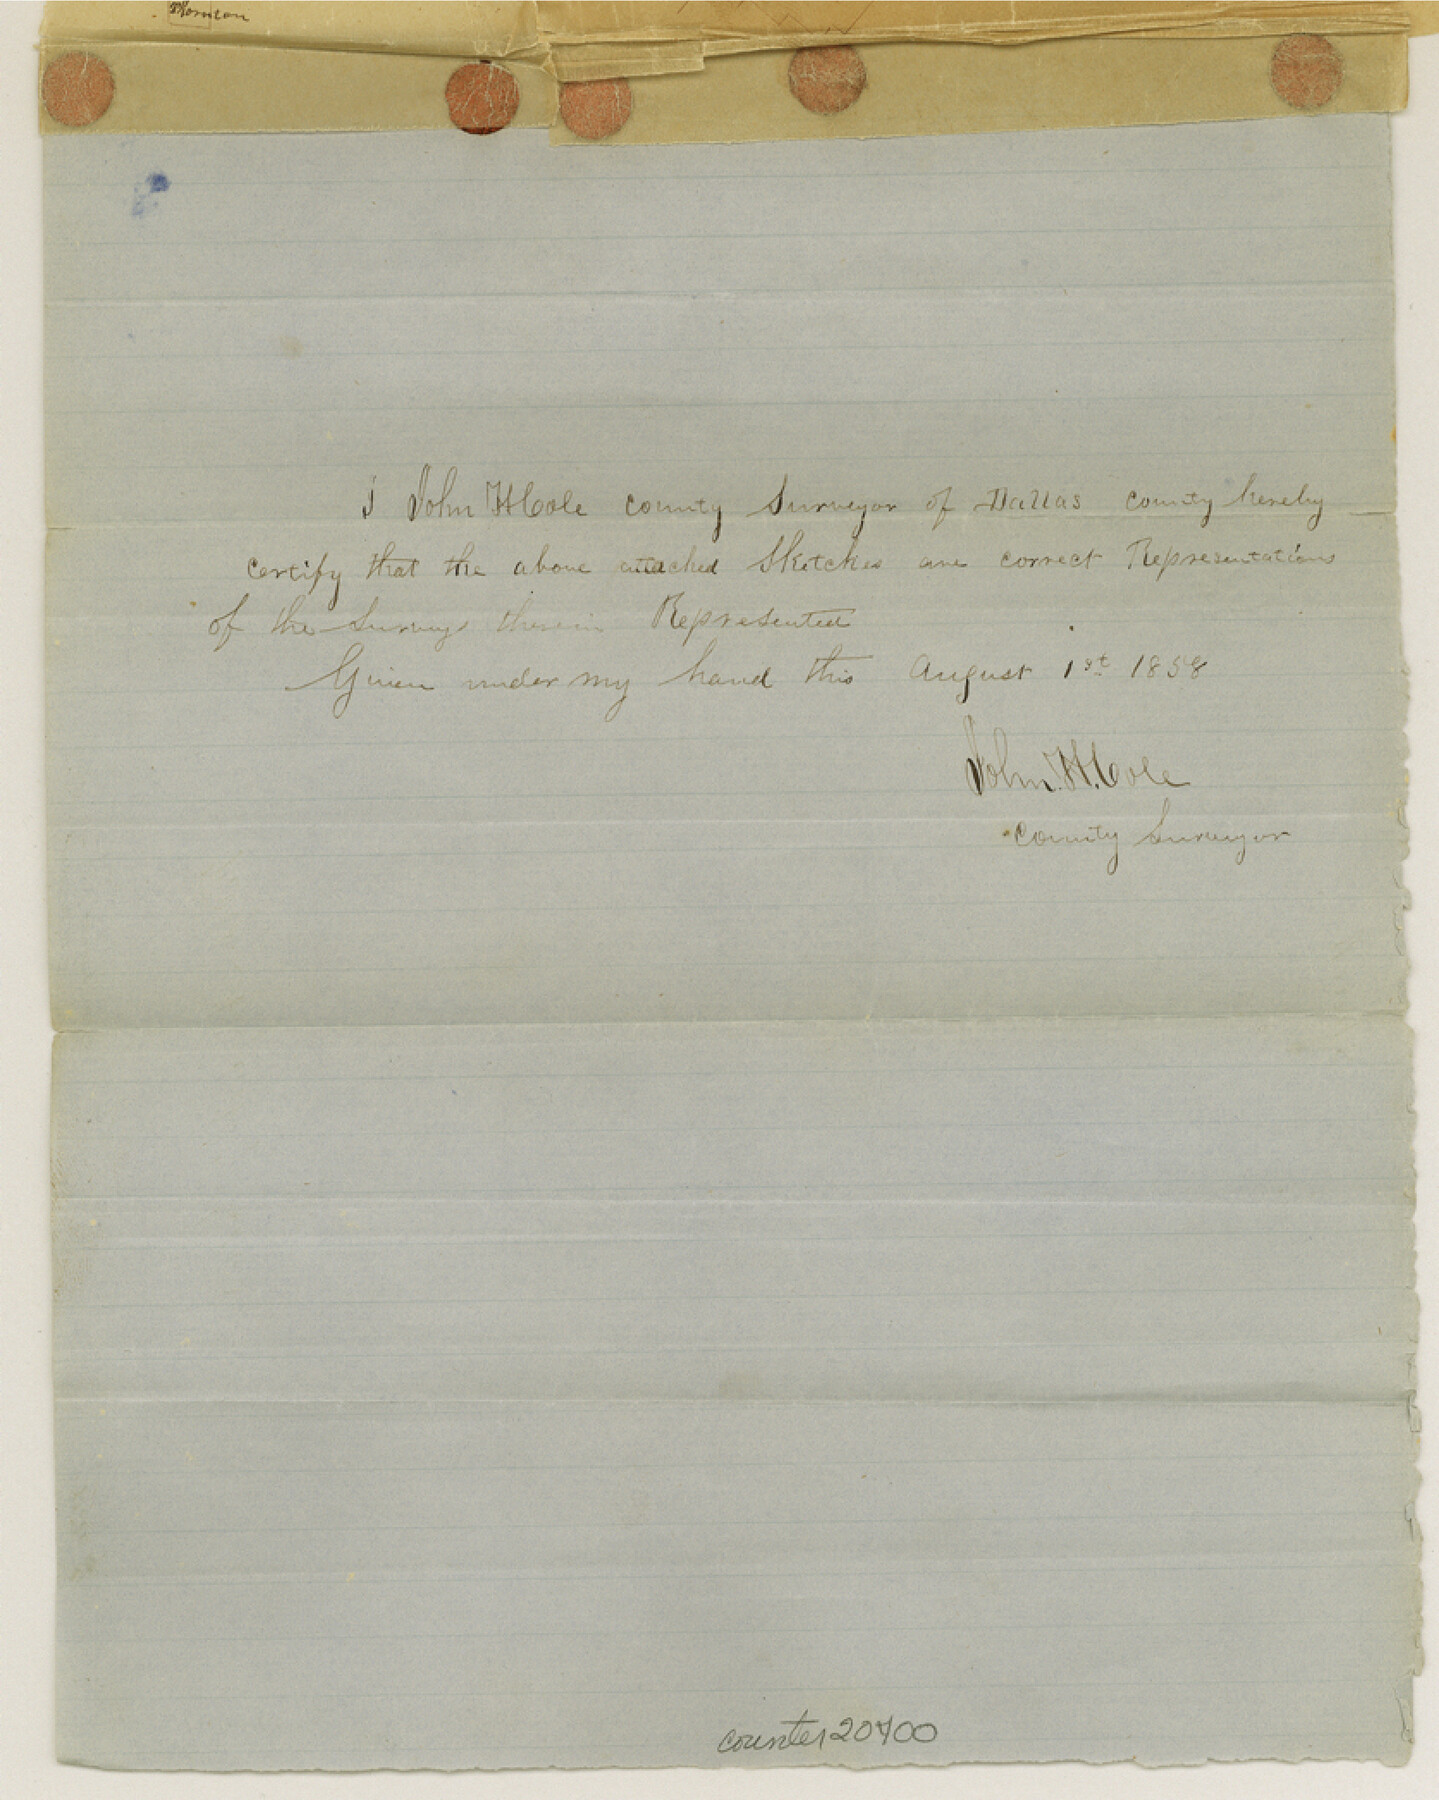 Thomson
I John H Cole county Surveyor of Dallas county hereby
certify that the above attached Sketches are correct Representations
of the Surveys therein Represented
Given under my hand this August 1st 1858
John. H. Cole
County Surveyor
counter 20400